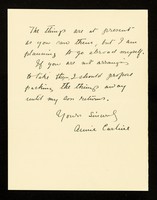 The things are at present
as you saw them, but I am
planning to go abroad myself.
If you are not arranging
to take them I should prefer
packing the things away
until my son returns.
Yours sincerely
Annie